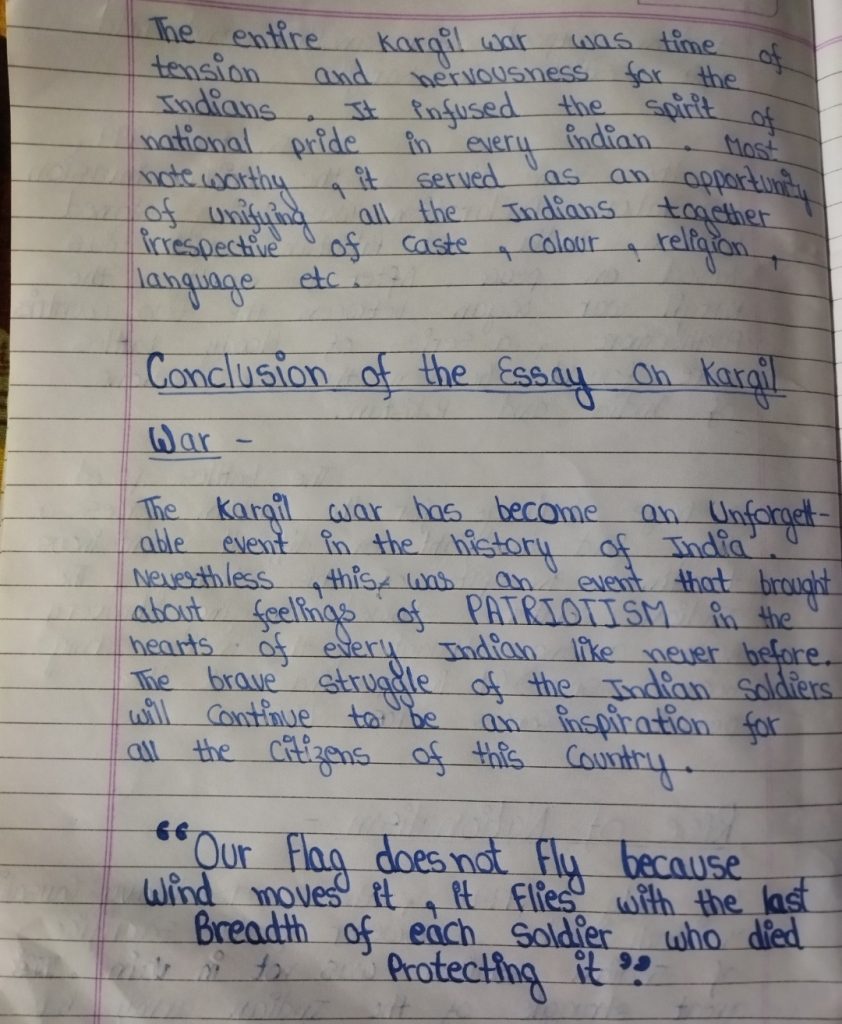 The entire Kargil war was time of
tension and nervousness for the
Indians . It infused the spirit of
national pride in every indian . Most
note worthy , it served as an opportunity
of unifying all the Indians together
irrespective of caste , colour , religion ,
language etc .
Conclusion of the Essay on Kargil
War -
The Kargil war has become an Unforgett-
able event in the history of India .
Neverthless , this, was an event that brought
about feelings of PATRIOTISM in the
hearts of every Indian like never before.
The brave struggle of the Indian Soldiers
will continue to be an inspiration for
all the Citizens of this Country .
“Our Flag does not Fly because
Wind moves it , it Flies with the last
Breadth of each Soldier who died
Protecting it”.